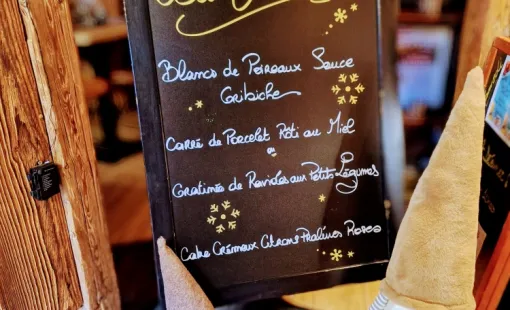 Blancs de Poireaux Sauce
Gribiche
Carré de Porcelet Rôti au Miel
ou
Gratinés de Ravioles aux Petits Légumes
Cake Crémeux Citrons Pralines Roses